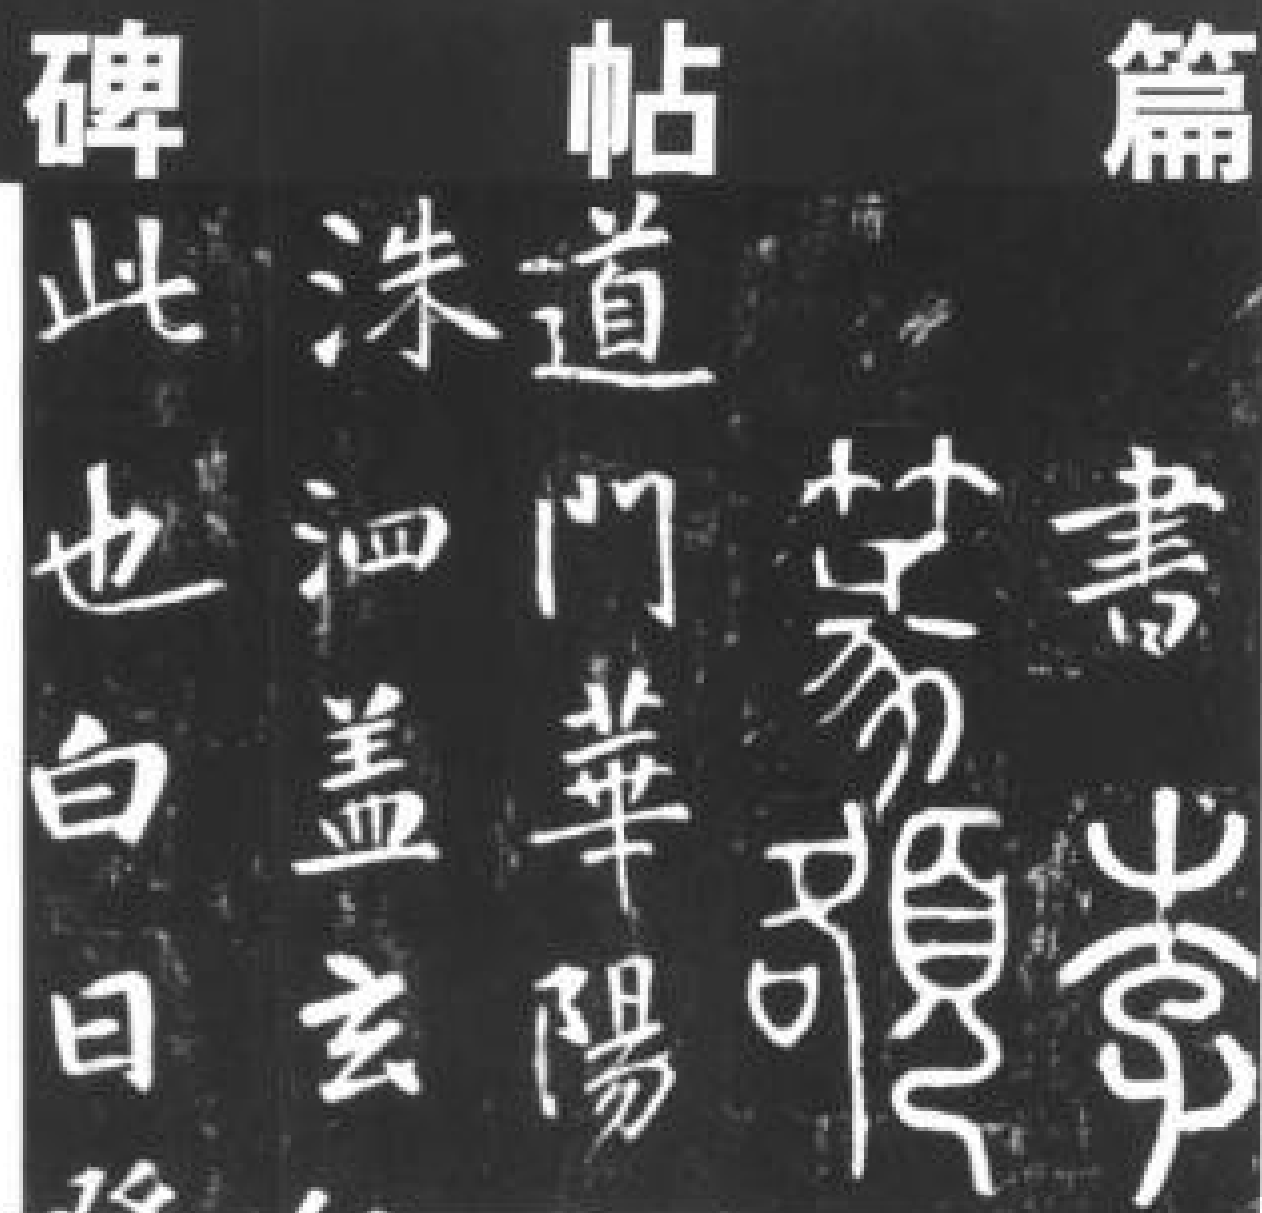 碑帖篇
書李
篆額
道門華陽
洙泗盖玄
此也白日